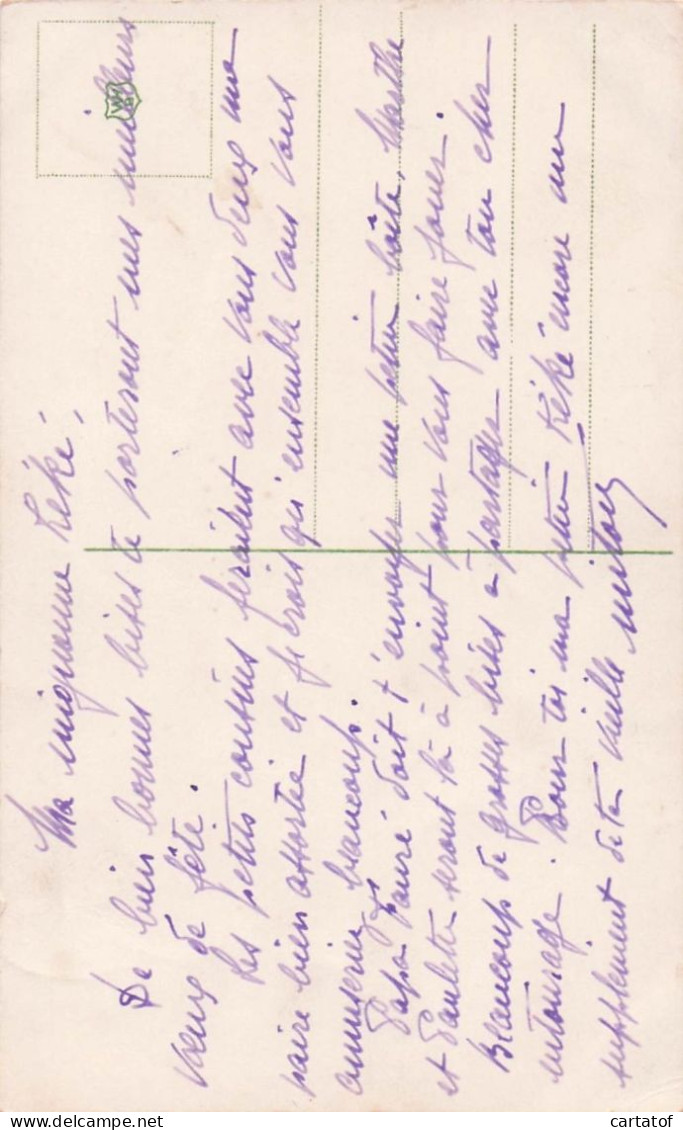 Ma mignonne Kéké,
De bien bonnes bises te porteront mes meilleurs
vœux de fête.
Les petits cousins feraient avec vous deux une
paire bien assortie et je crois qu'ensemble vous vous
amuseriez beaucoup.
Papa Fauré doit t'envoyer une petite boîte, Marthe
et Paulette seront là à point pour vous faire jouer.
Beaucoup de grosses bises à partager avec ton cher
entourage. Pour toi ma petite Kéké encore un
supplément de ta vieille
cartatof